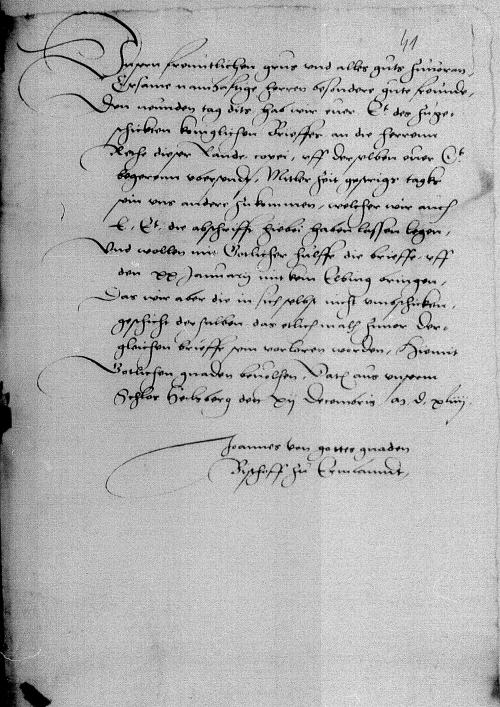 41
Unsern freuntlichen grus und alles guts zuuoran,
Ersame namhaftige herren besondere gute freunde,
Den neunden tag dits, hab wir euer E. der zuge-
schickten koniglichen Brieffes an die herrenn
Rethe dieser Lande copei, uff derselben euer E.
begerenn ubersendt, Mitler zeit gestrigs tages
sein uns andere zukommen, welcher wir auch
E. E. die abschriffte hiebei haben lassen legen,
Und wollen mit Gotlicher hulffe die brieffe uff
den xx Januarii mit kein Elbing bringen,
Das wir aber die in sich selbst nicht umbschicken,
geschicht derhalben, das etlich mals zuuor der-
gleichen brieffe sein vorloren worden, Hiemit
Gotlichen gnaden beuolhen, Dat. aus unserm
Schlos Heilsberg den xij Decembris an. d. xliiij
Joannes von gottes gnaden
Bischoff zu Ermlanndt,